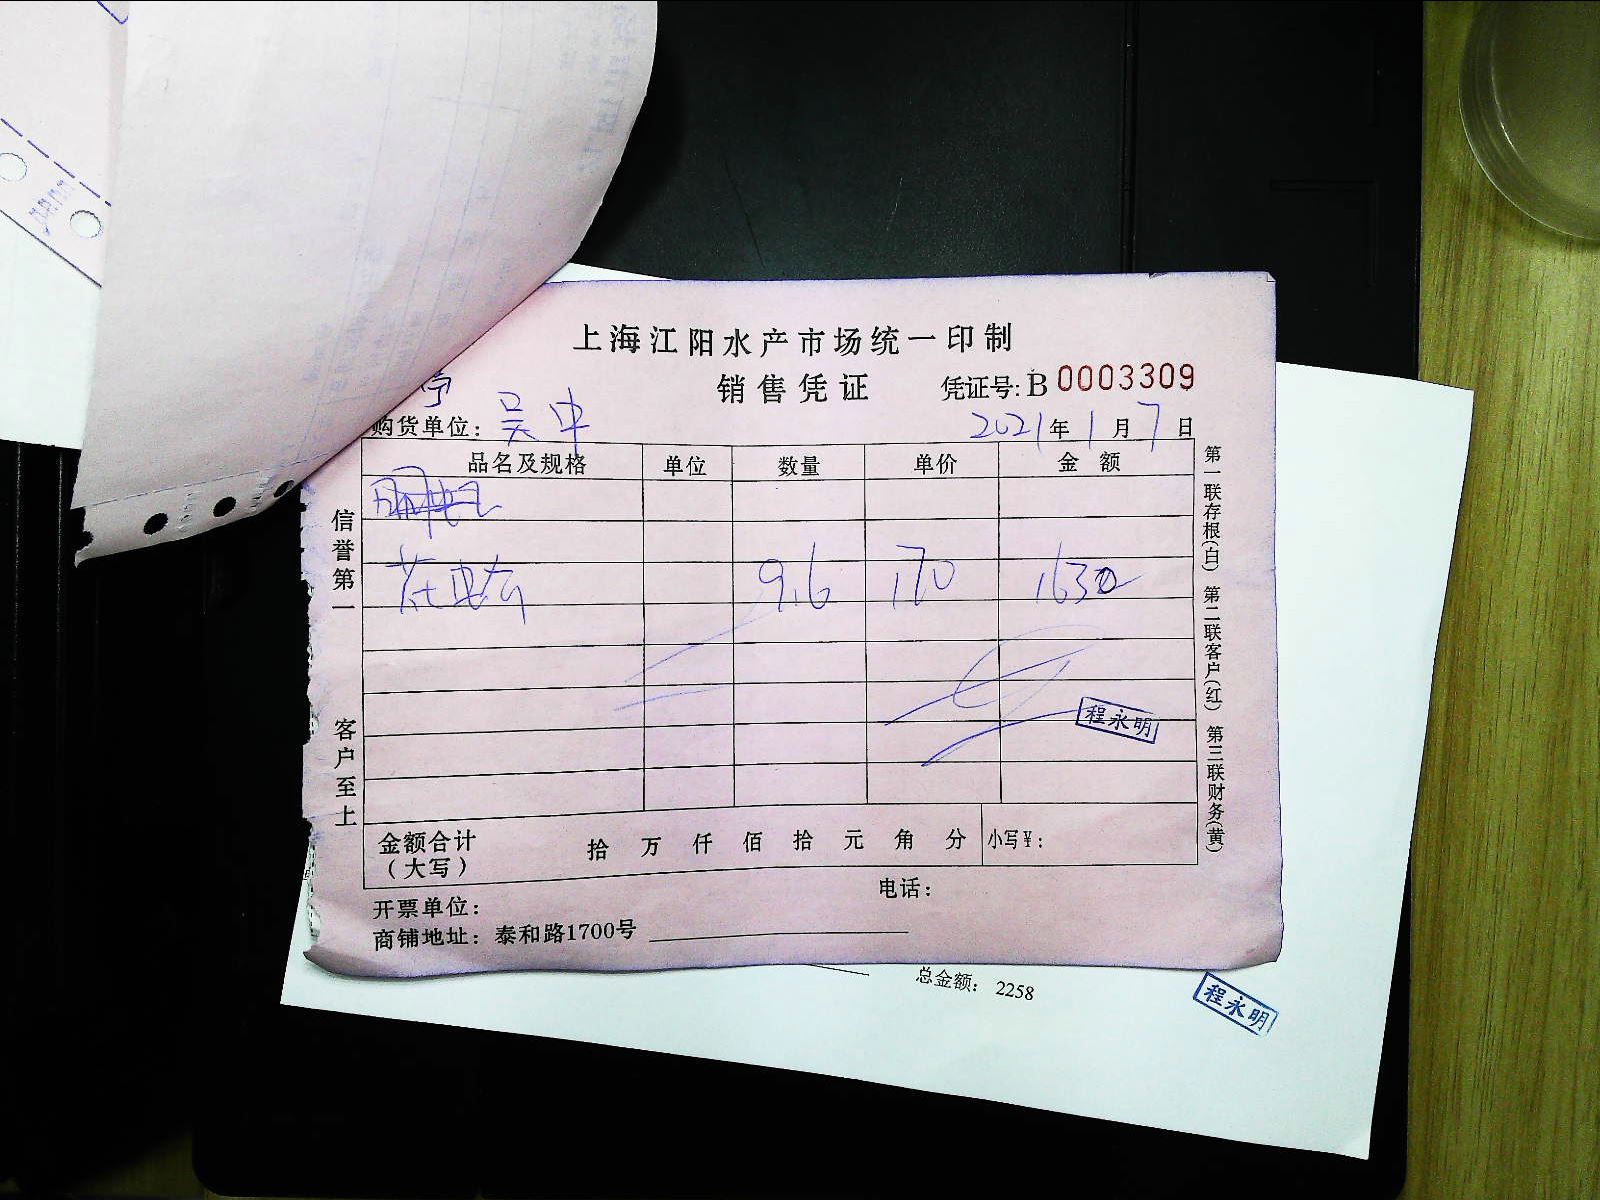 上海江阳水产市场统一印制
销售凭证 凭证号: B 0003309
购货单位: 吴中 2021年1月7日
品名及规格 单位 数量 单价 金额
9.6 170 1630
信誉第一
客户至上
程永明
金额合计(大写) 拾 万 仟 佰 拾 元 角 分 小写¥:
电话:
开票单位:
商铺地址: 泰和路1700号
第一联存根(白) 第二联客户(红) 第三联财务(黄)
总金额: 2258
程永明